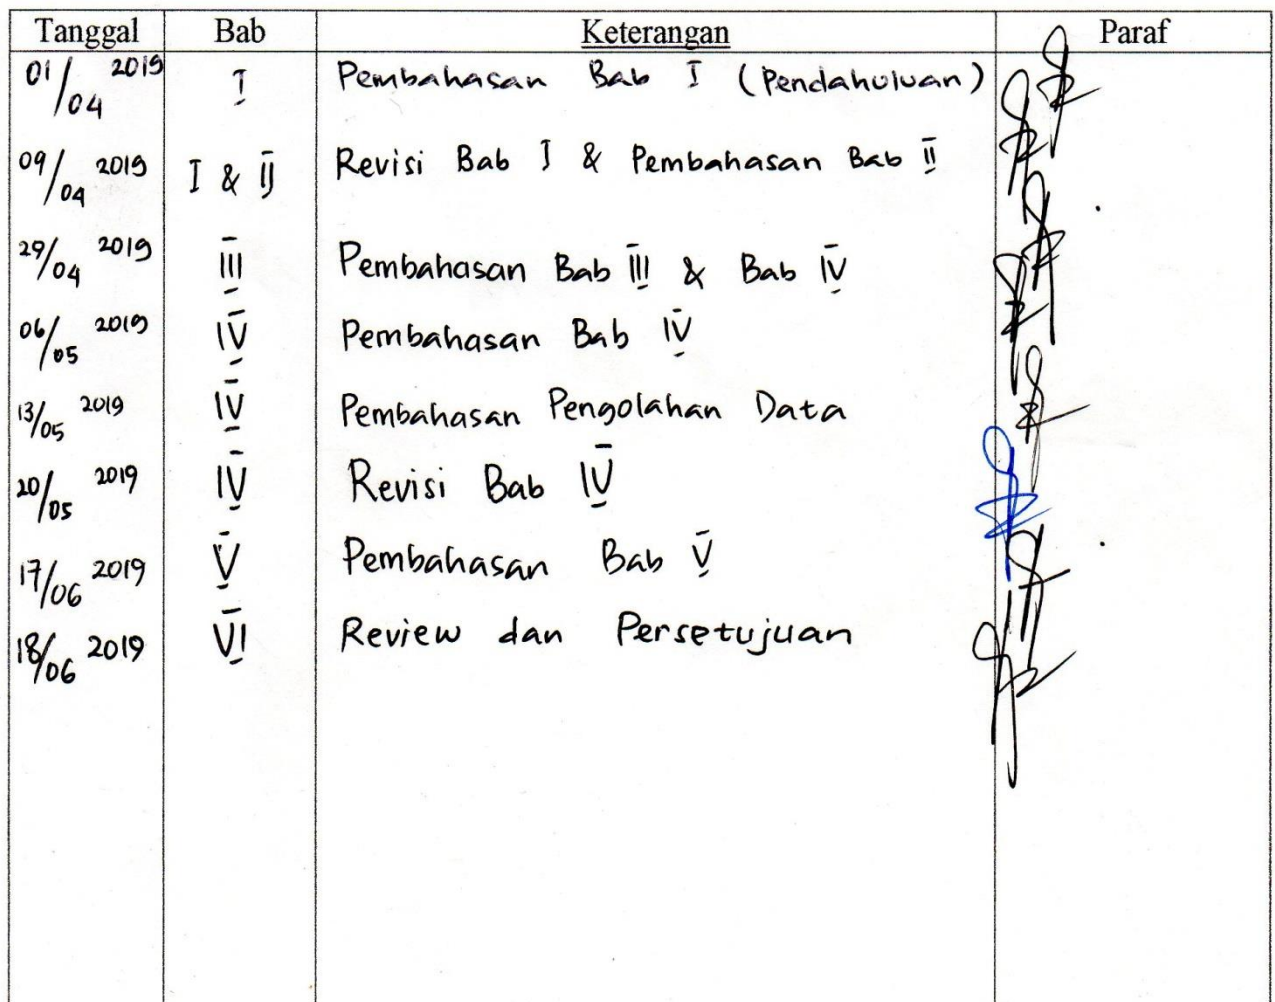 Tanggal Bab Keterangan Paraf
01/04 2019 I Pembahasan Bab I (Pendahuluan)
09/04 2019 I & II Revisi Bab I & Pembahasan Bab II
29/04 2019 III Pembahasan Bab III & Bab IV
06/05 2019 IV Pembahasan Bab IV
13/05 2019 IV Pembahasan Pengolahan Data
20/05 2019 IV Revisi Bab IV
17/06 2019 V Pembahasan Bab V
18/06 2019 VI Review dan Persetujuan